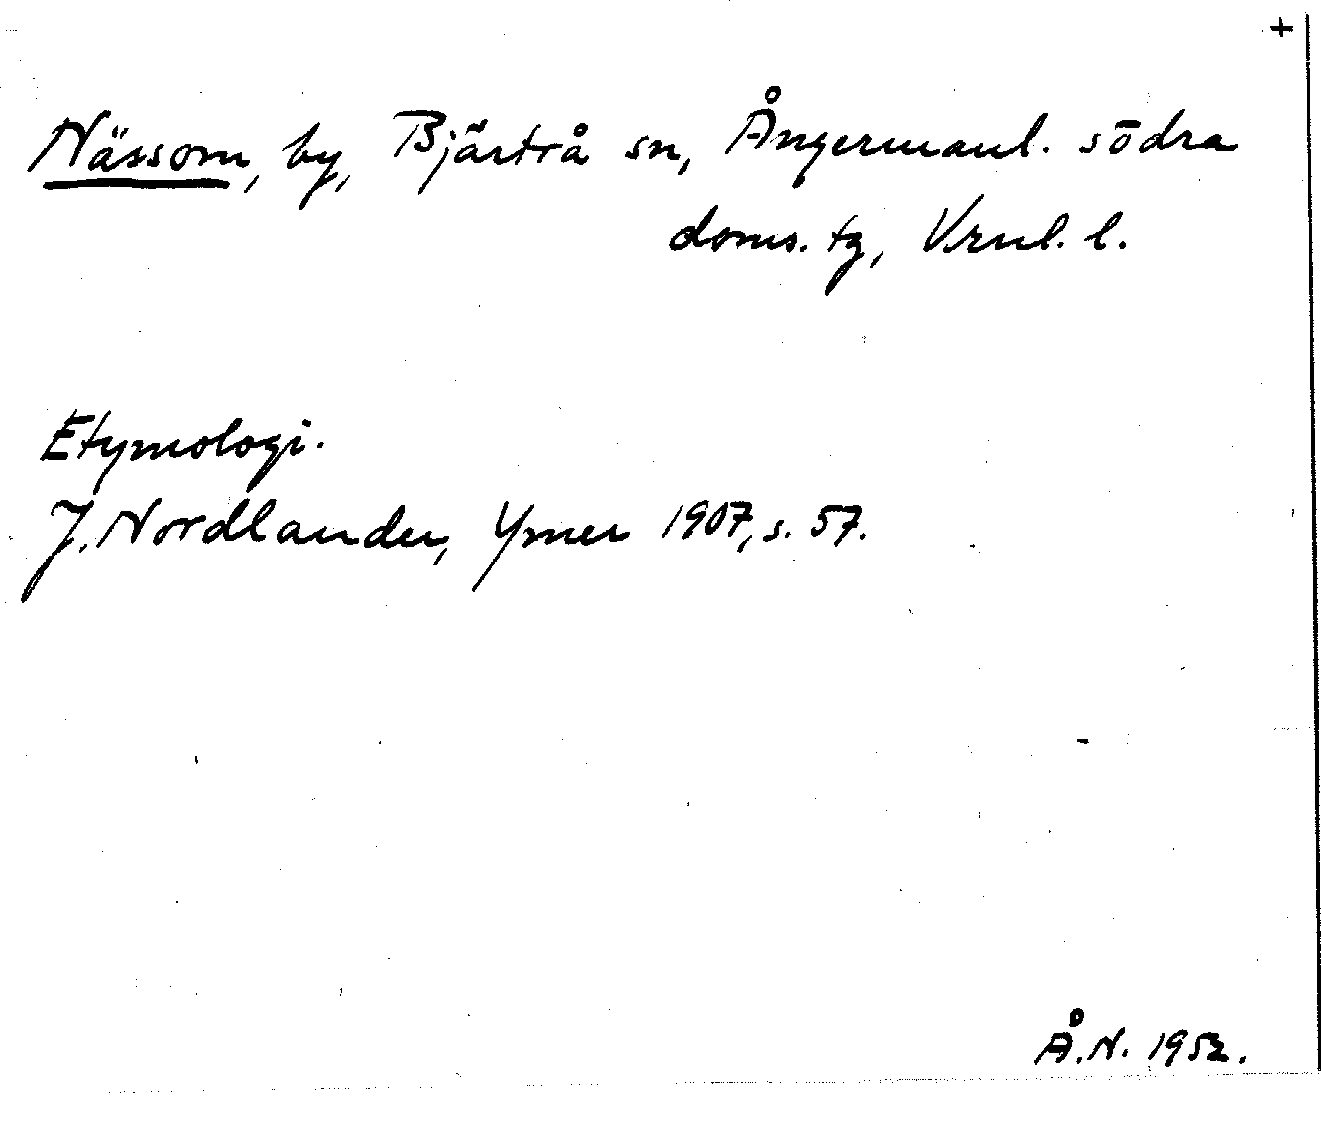 +
Nässom, by, Bjärtrå sn, Ångermanl. södra
doms. tg, Vrnl. l.
Etymologi.
J. Nordlander, Ymer 1907, s. 57.
Å.N. 1952.